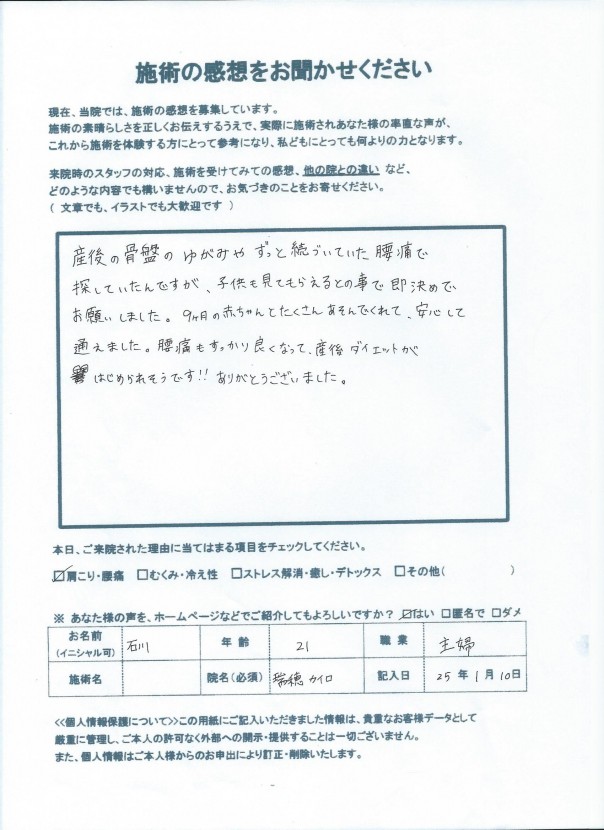 施術の感想をお聞かせください
現在、当院では、施術の感想を募集しています。
施術の素晴らしさを正しくお伝えするうえで、実際に施術されあなた様の率直な声が、
これから施術を体験する方にとって参考になり、私どもにとっても何よりの力となります。
来院時のスタッフの対応、施術を受けてみての感想、他の院との違い など、
どのような内容でも構いませんので、お気づきのことをお寄せください。
( 文章でも、イラストでも大歓迎です )
産後の骨盤の ゆがみや ずっと続づいていた 腰痛で
探していたんですが、子供も見てもらえるとの事で 即決めで
お願いしました。9ヶ月の赤ちゃんとたくさんあそんでくれて、安心して
通えました。腰痛もすっかり良くなって、産後ダイエットが
はじめられそうです!! ありがとうございました。
本日、ご来院された理由に当てはまる項目をチェックしてください。
☑肩こり・腰痛 □むくみ・冷え性 □ストレス解消・癒し・デトックス □その他( )
※ あなた様の声を、ホームページなどでご紹介してもよろしいですか? ☑はい □匿名で □ダメ
お名前 (イニシャル可) 石川 年 齢 21 職 業 主婦
施術名 院名(必須) 瑞穂カイロ 記入日 25 年 1 月 10 日
<<個人情報保護について>>この用紙にご記入いただきました情報は、貴重なお客様データとして
厳重に管理し、ご本人の許可なく外部への開示・提供することは一切ございません。
また、個人情報はご本人様からのお申出により訂正・削除いたします。